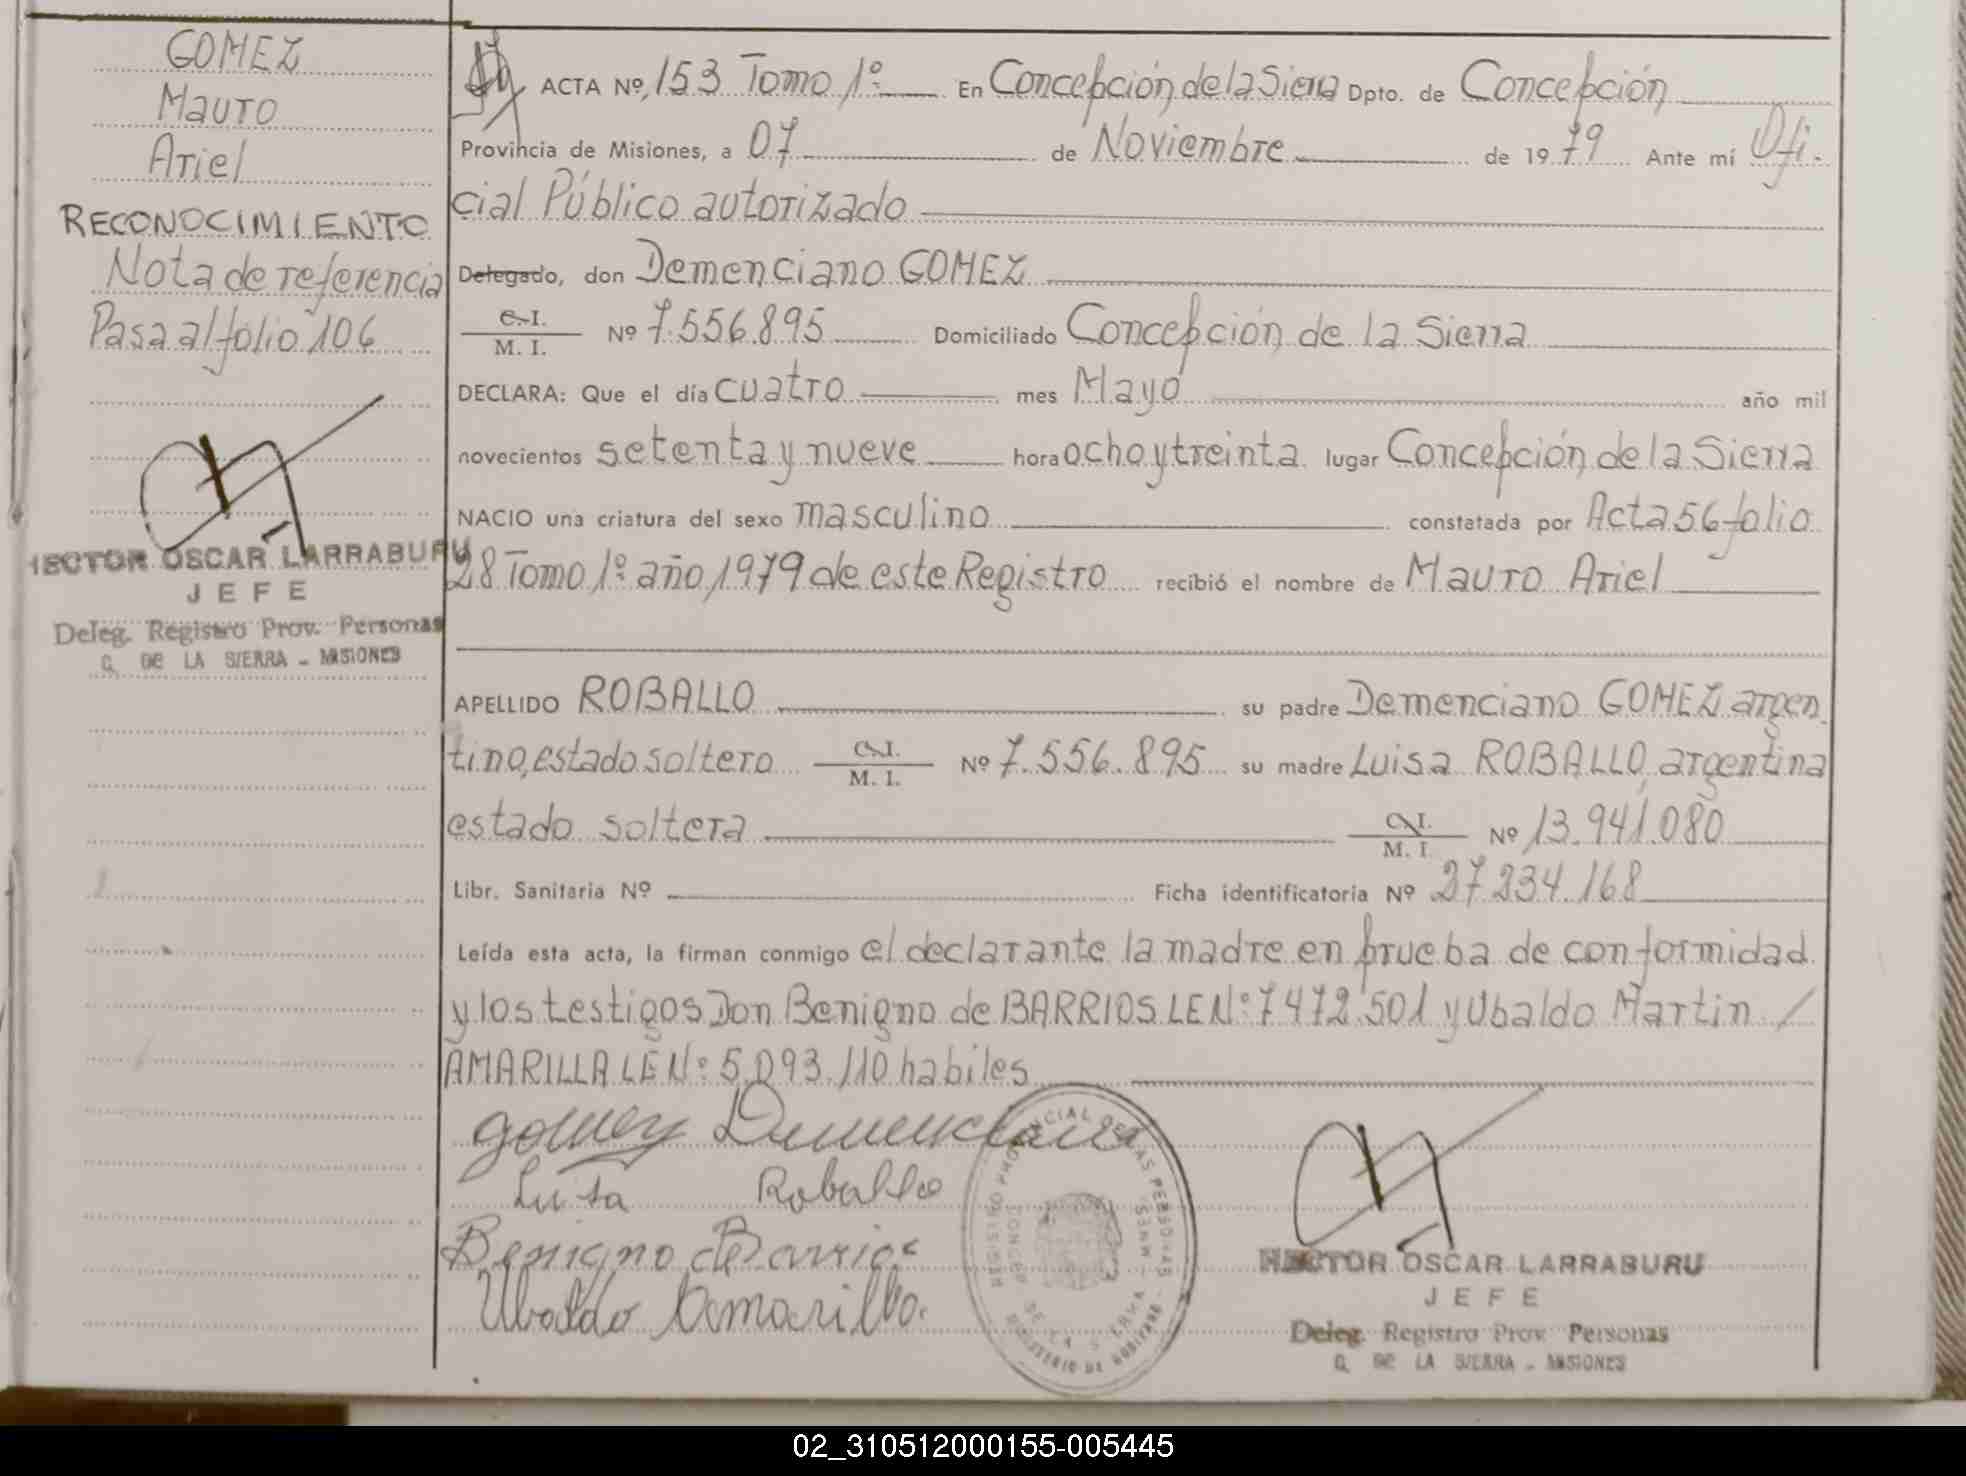 GOMEZ
Mauro
Ariel
RECONOCIMIENTO
Nota de referencia
Pasa al folio 106
HECTOR OSCAR LARRABURU
JEFE
Deleg. Registro Prov. Personas
C. DE LA SIERRA - MISIONES
ACTA Nº 153 Tomo 1º En Concepción de la Sierra Dpto. de Concepción
Provincia de Misiones, a 07 de Noviembre de 1979 Ante mí Ofi-
cial Público autorizado
Delegado, don Demenciano GOMEZ
C.I. M. I. Nº 7.556.895 Domiciliado Concepción de la Sierra
DECLARA: Que el día cuatro mes Mayo año mil
novecientos setenta y nueve hora ocho y treinta lugar Concepción de la Sierra
NACIO una criatura del sexo masculino constatada por Acta 56 folio
28 Tomo 1º año 1979 de este Registro recibió el nombre de Mauro Ariel
APELLIDO ROBALLO su padre Demenciano GOMEZ argen
tino, estado soltero C.I. M. I. Nº 7.556.895 su madre Luisa ROBALLO, argentina
estado soltera C.I. M. I. Nº 13.941.080
Libr. Sanitaria Nº Ficha identificatoria Nº 27.234.168
Leída esta acta, la firman conmigo el declarante la madre en prueba de conformidad
y los testigos Don Benigno de BARRIOS LE Nº 7.472.501 y Ubaldo Martin /
AMARILLA LE Nº 5.093.110 habiles
Gomez Demenciano
Luisa Roballo
Benigno de Barrios
Ubaldo Amarilla.
HECTOR OSCAR LARRABURU
JEFE
Deleg. Registro Prov. Personas
C. DE LA SIERRA - MISIONES
02_310512000155-005445